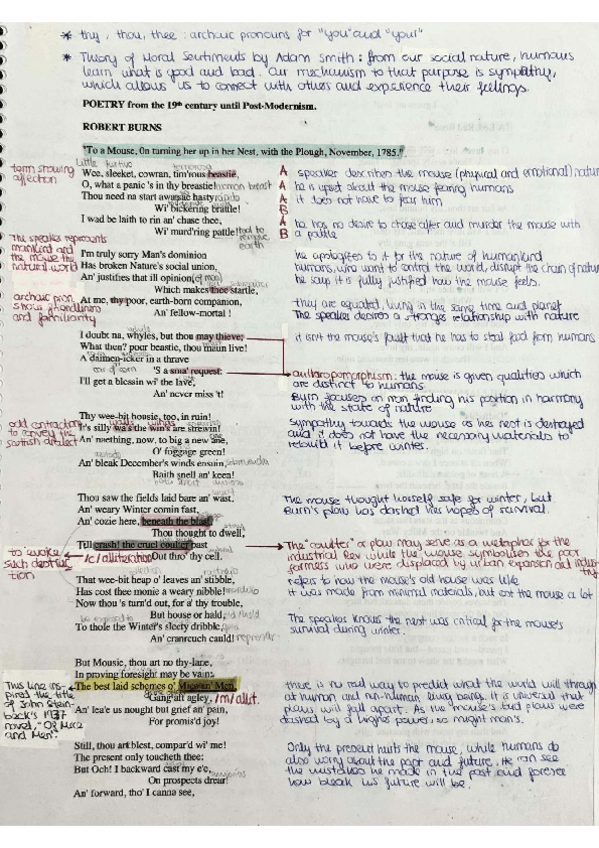 * thy, thou, thee : archaic pronouns for "you" and "your"
* Theory of Moral Sentiments by Adam Smith : from our social nature, humans
learn what is good and bad. Our mechanism to that purpose is sympathy,
which allows us to connect with others and experience their feelings.
POETRY from the 19th century until Post-Modernism.
ROBERT BURNS
"To a Mouse, On turning her up in her Nest, with the Plough, November, 1785."
Little furtive
term showing
affection
Wee, sleeket, cowran, tim'rous beastie, A speaker describes the mouse (physical and emotional) nature
O, what a panic 's in thy breastie! A he is upset about the mouse fearing humans
Thou need na start awa sae hasty A it does not have to fear him
Wi' bickering brattle! B
I wad be laith to rin an' chase thee, A he has no desire to chase after and murder the mouse with
Wi' murd'ring pattle! B a pattle
The speaker represents
mankind and
the mouse the
natural world
I'm truly sorry Man's dominion he apologizes to it for the nature of humankind
Has broken Nature's social union, humans, who want to control the world, disrupt the chain of nature
An' justifies that ill opinion he says it is fully justified how the mouse feels.
Which makes thee startle,
archaic pron.
show friendliness
and familiarity
At me, thy poor, earth-born companion, they are equated, living in the same time and planet
An' fellow-mortal ! The speaker desires a stronger relationship with nature
I doubt na, whyles, but thou may thieve; it isn't the mouse's fault that he has to steal food from humans
What then? poor beastie, thou maun live!
A daimen-icker in a thrave
ear of corn
'S a sma' request: anthropomorphism : the mouse is given qualities which
are distinct to humans
I'll get a blessin wi' the lave,
An' never miss 't! Burn focuses on man finding his position in harmony
with the state of nature
Thy wee-bit housie, too, in ruin! Sympathy towards the mouse as his nest is destroyed
odd contraction
to convey the
scottish dialect
It's silly wa's the win's are strewin! and it does not have the necessary materials to
An' naething, now, to big a new ane, rebuild it before winter.
O' foggage green!
An' bleak December's winds ensuin,
Baith snell an' keen!
Thou saw the fields laid bare an' wast, The mouse thought herself safe for winter, but
An' weary Winter comin fast, Burn's plow has dashed her hopes of survival.
An' cozie here, beneath the blast,
Thou thought to dwell,
Till crash! the cruel coulter past The "coulter" or plow may serve as a metaphor for the
Out thro' thy cell. industrial Rev while the mouse symbolises the poor
to evoke
such destruc
tion
/c/ alliteration
farmers who were displaced by urban expansion and industry
That wee-bit heap o' leaves an' stibble, refers to how the mouse's old house was like
Has cost thee monie a weary nibble! it was made from minimal materials, but cost the mouse a lot
Now thou 's turn'd out, for a' thy trouble,
But house or hald, The speaker knows the nest was critical for the mouse's
To thole the Winter's sleety dribble, survival during winter.
An' cranreuch cauld!
But Mousie, thou art no thy-lane,
In proving foresight may be vain:
This line ins-
pired the title
of John Stein-
back's 1937
novel, "Of Mice
and Men".
The best laid schemes o' Mice an' Men, there is no real way to predict what the world will through
Gang aft agley, /m/ allit. at human and non-human living beings. It is universal that
An' lea'e us nought but grief an' pain, plans will fall apart. As the mouse's best plans were
For promis'd joy! dashed by a higher power, so might man's.
Still, thou art blest, compar'd wi' me! Only the present hurts the mouse, while humans do
The present only toucheth thee: also worry about the past and future. He can see
But Och! I backward cast my e'e, the mistakes he made in the past and foresee
On prospects drear! how bleak his future will be.
An' forward, tho' I canna see,